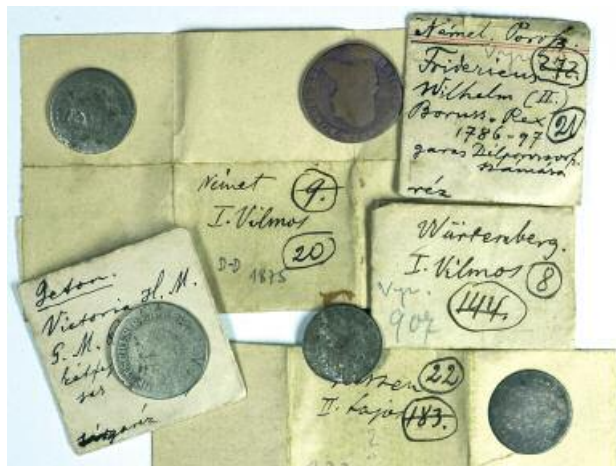 Német. Porosz.
272
Fridericus
Wilhelm (II.
Boruss. Rex 21
1786-97
garas Délporoszorsz.
számára
réz
Német 9.
I. Vilmos
20
D-D 1875
Würtemberg.
I. Vilmos 8
144.
907
Jeton.
Victoria H. M.
G. M.
sárgaréz
Hessen 22
II. Lajos 183.